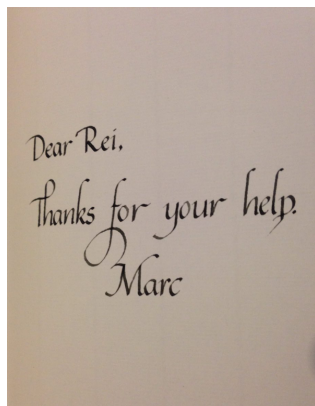 Dear Rei,
Thanks for your help.
Marc